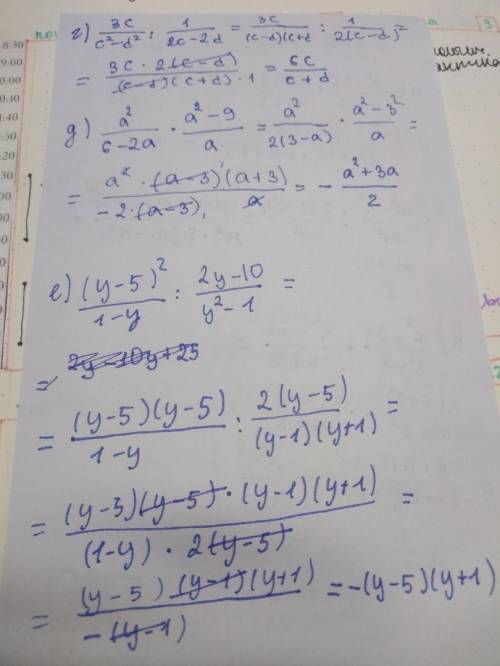 г) 3c/(c²-d²) : 1/(2c-2d) = 3c/((c-d)(c+d)) : 1/(2(c-d)²)
= (3c · 2(c-d))/((c-d)(c+d) · 1) = 6c/(c+d)
д) a²/(6-2a) · (a²-9)/a = a²/(2(3-a)) · (a²-3²)/a =
= (a² · (a-3)(a+3))/(-2·(a-3) · a) = - (a²+3a)/2
е) (y-5)²/(1-y) : (2y-10)/(y²-1) =
= 2y-10y+25
= ((y-5)(y-5))/(1-y) : (2(y-5))/((y-1)(y+1)) =
= ((y-5)(y-5) · (y-1)(y+1))/((1-y) · 2(y-5)) =
= ((y-5)(y-1)(y+1))/(-(y-1)) = -(y-5)(y+1)
8:30
9:00
10:00
11:00